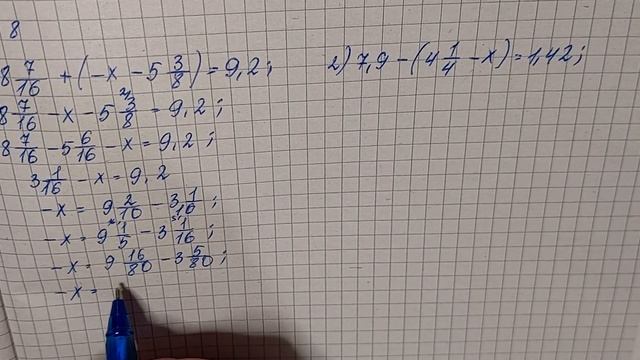 8
8 7/16 + (-x - 5 3/8) = 9,2;
8 7/16 - x - 5 3/8 = 9,2;
8 7/16 - 5 6/16 - x = 9,2;
3 1/16 - x = 9,2
-x = 9 2/10 - 3 1/16;
-x = 9 1/5 - 3 1/16;
-x = 9 16/80 - 3 5/80;
-x =
2) 7,9 - (4 1/4 - x) = 1,42;